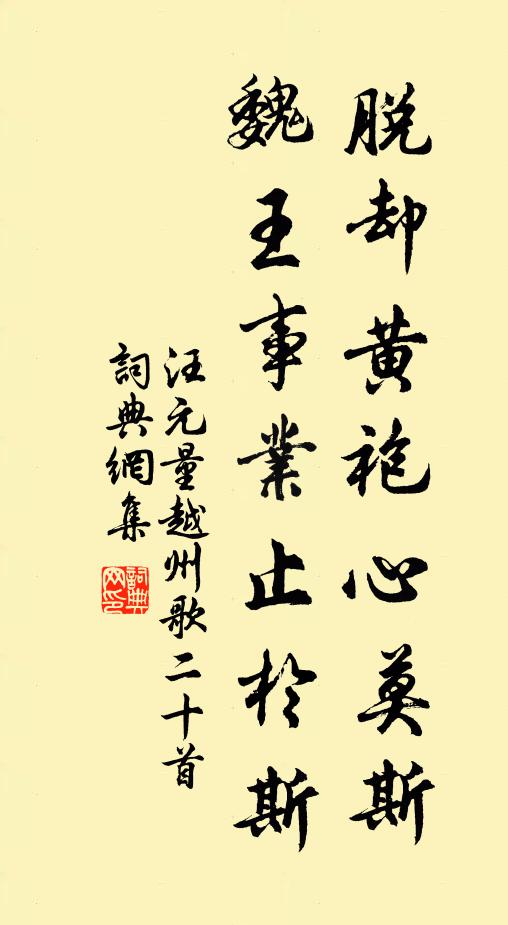 脫却黃袍心莫斯
魏王事業止於斯
汪元量越州歌二十首
詞典網集
詞典網印